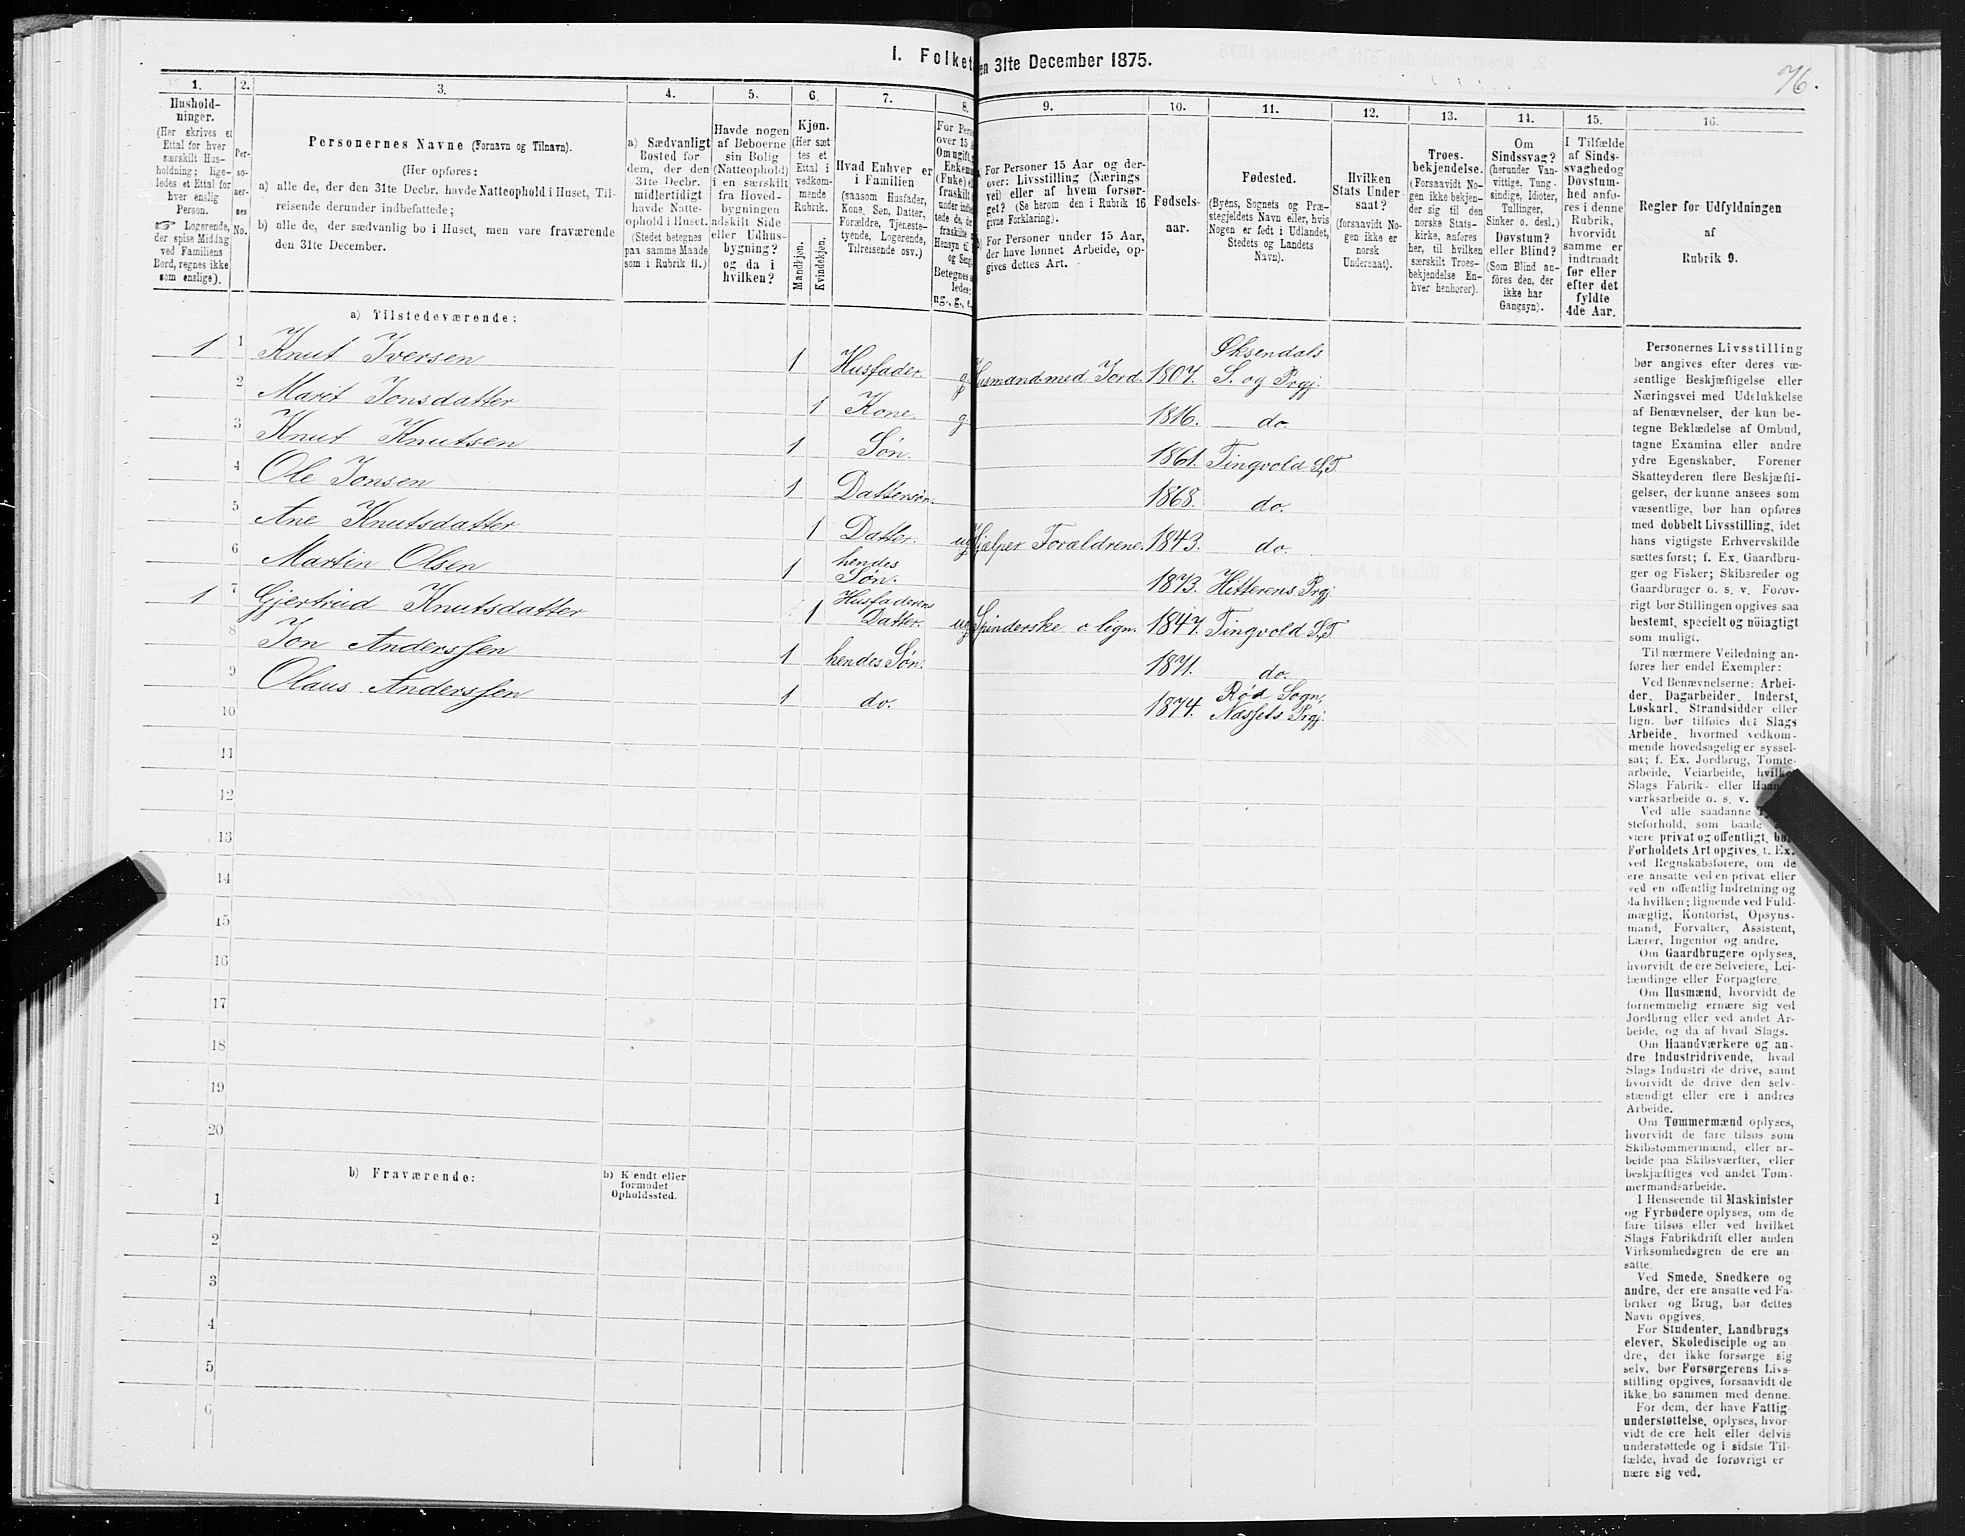 I. Folket
en 31te December 1875.
76.
1.
2.
3.
4.
5.
6.
7.
8.
9.
10.
11.
12.
13.
14.
15.
16.
Hushold-
ninger.
(Her skrives et
Ettal for hver
særskilt Hus-
holdning; lige-
ledes et Ettal for
hver enslig
Person.
☞ Logerende,
der spise Middag
ved Familiens
Bord, regnes ikke
som enslige).
Per-
so-
ner-
nes
No.
Personernes Navne (Fornavn og Tilnavn).
(Her opføres:
a) alle de, der den 31te Decbr. havde Natteophold i Huset, Til-
reisende derunder indbefattede;
b) alle de, der sædvanlig bo i Huset, men vare fraværende
den 31te December.
a) Sædvanligt
Bosted for
dem, der den
31te Decbr.
midlertidigt
havde Natte-
ophold i Huset.
(Stedet betegnes
paa samme Maade
som i Rubrik 11.)
Havde nogen
af Beboerne
sin Bolig
(Natteophold)
i en særskilt
fra Hoved-
bygningen
adskilt Side
eller Udhus-
bygning?
og da i
hvilken?
Kjøn.
(Her sæt
tes et
Ettal i
vedkom-
mende
Rubrik.
Mandkjøn.
Kvindekjøn.
Hvad Enhver er
i Familien
(saasom Husfader,
Kone, Søn, Datter,
Forældre, Tjeneste-
tyende, Logerende,
Tilreisende osv.)
For Pers
over 15 A
Om ugift,
Enkema
(Enke) e
fraskilt
under indbe
tede de, de
fraskilte
Hensyn til
og Seng
Betegnes s
ledes:
ug., g., e.
For Personer 15 Aar og der-
over: Livsstilling (Nærings
vei) eller af hvem forsør-
get? (Se herom den i Rubrik 16
givne Forklaring).
For Personer under 15 Aar,
der have lønnet Arbeide, op-
gives dettes Art.
Fødsels-
aar.
Fødested.
(Byens, Sognets og Præ-
stegjeldets Navn eller, hvis
Nogen er født i Udlandet,
Stedets og Landets
Navn).
Hvilken
Stats Under-
saat?
(forsaavidt No-
gen ikke er
norsk
Undersaat).
Troes-
bekjendelse.
(Forsaavidt No-
gen ikke bekjen-
der sig til den
norske Stats-
kirke, anføres
her, til hvilken
særskilt Troes-
bekjendelse En-
hver henhører).
Om
Sindssvag?
(herunder Van-
vittige, Tung-
sindige, Idioter,
Tullinger,
Sinker o. desl.)
Døvstum?
eller Blind?
(Som Blind an-
føres den, der
ikke har
Gangsyn).
I Tilfælde
af Sinds-
svaghed og
Døvstum-
hed anfø-
res i denne
Rubrik,
hvorvidt
samme er
indtraadt
før eller
efter det
fyldte
4de Aar.
Regler for Udfyldningen
af
Rubrik 9.
a) Tilstedeværende:
1 1 Knut Iversen 1 Husfader. g Husmand med Jord. 1807. Øksendals S. og Prgj.
2 Marit Jonsdatter 1 Kone g 1816. do.
3 Knut Knutsen 1 Søn. 1861. Tingvold S, T.
4 Ole Jonsen 1 Dattersøn. 1868. do.
5 Ane Knutsdatter 1 Datter. ug Hjælper Forældrene. 1843. do.
6 Martin Olsen 1 hendes Søn. 1873. Hitterens Prgj.
1 7 Gjertrud Knutsdatter 1 Husfaderens Datter. ug Spinderske o. lign. 1847. Tingvold S, T.
8 Jon Anderssen 1 hendes Søn. 1871. do.
9 Olaus Anderssen 1 do. 1874. Rød Sogn, Næssets Prgj.
10
11
12
13
14
15
16
17
18
19
20
b) Fraværende:
b) Kjendt eller
formodet
Opholdssted.
1
2
3
4
5
6
Personernes Livsstilling
bør angives efter deres væ-
sentlige Beskjæftigelse eller
Næringsvei med Udelukkelse
af Benævnelser, der kun be-
tegne Beklædelse af Ombud,
tagne Examina eller andre
ydre Egenskaber. Forener
Skatteyderen flere Beskjæfti-
gelser, der kunne ansees som
væsentlige, bør han opføres
med dobbelt Livsstilling, idet
hans vigtigste Erhvervskilde
sættes først; f. Ex. Gaardbru-
ger og Fisker; Skibsreder og
Gaardbruger o. s. v. Forøv-
rigt bør Stillingen opgives saa
bestemt, specielt og nøiagtigt
som muligt.
Til nærmere Veiledning an-
føres her endel Exempler:
Ved Benævnelserne: Arbei-
der, Dagarbeider, Inderst,
Løskarl, Strandsidder eller
lign. bør tilføies det Slags
Arbeide, hvormed vedkom-
mende hovedsagelig er syssel-
sat; f. Ex. Jordbrug, Tomte-
arbeide, Veiarbeide, hvilket
Slags Fabrik- eller Haand-
værksarbeide o. s. v.
Ved alle saadanne
steforhold, som baade
være privat og offentligt, bør
Forholdets Art opgives, t. Ex.
ved Regnskabsførere, om de
ere ansatte ved en privat eller
ved en offentlig Indretning og
da hvilken; lignende ved Fuld-
mægtig, Kontorist, Opsyns-
mand, Forvalter, Assistent,
Lærer, Ingeniør og andre.
Om Gaardbrugere oplyses,
hvorvidt de ere Selveiere, Lei-
lændinge eller Forpagtere.
Om Husmænd, hvorvidt de
fornemmelig ernære sig ved
Jordbrug eller ved andet Ar-
beide, og da af hvad Slags.
Om Haandværkere og an-
dre Industridrivende, hvad
Slags Industri de drive, samt
hvorvidt de drive den selv-
stændigt eller ere i andres
Arbeide.
Om Tømmermænd oplyses,
hvorvidt de fare tilsøs som
Skibstømmermænd, eller ar-
beide paa Skibsværfter, eller
beskjæftiges ved andet Tøm-
mermandsarbeide.
I Henseende til Maskinister
og Fyrbødere oplyses, om de
fare tilsøs eller ved hvilket
Slags Fabrikdrift eller anden
Virksomhedsgren de ere an-
satte.
Ved Smede, Snedkere og
andre, der ere ansatte ved Fa-
briker og Brug, bør dettes
Navn opgives.
For Studenter, Landbrugs
elever, Skoledisciple og an
dre, der ikke forsørge sig
selv, bør Forsørgerens Livs-
stilling opgives, forsaavidt de
ikke bo sammen med denne.
For dem, der have Fattig
understøttelse, oplyses, hvor-
vidt de ere helt eller delvis
understøttede og i sidste Til-
fælde, hvad de forøvrigt er
nære sig ved.